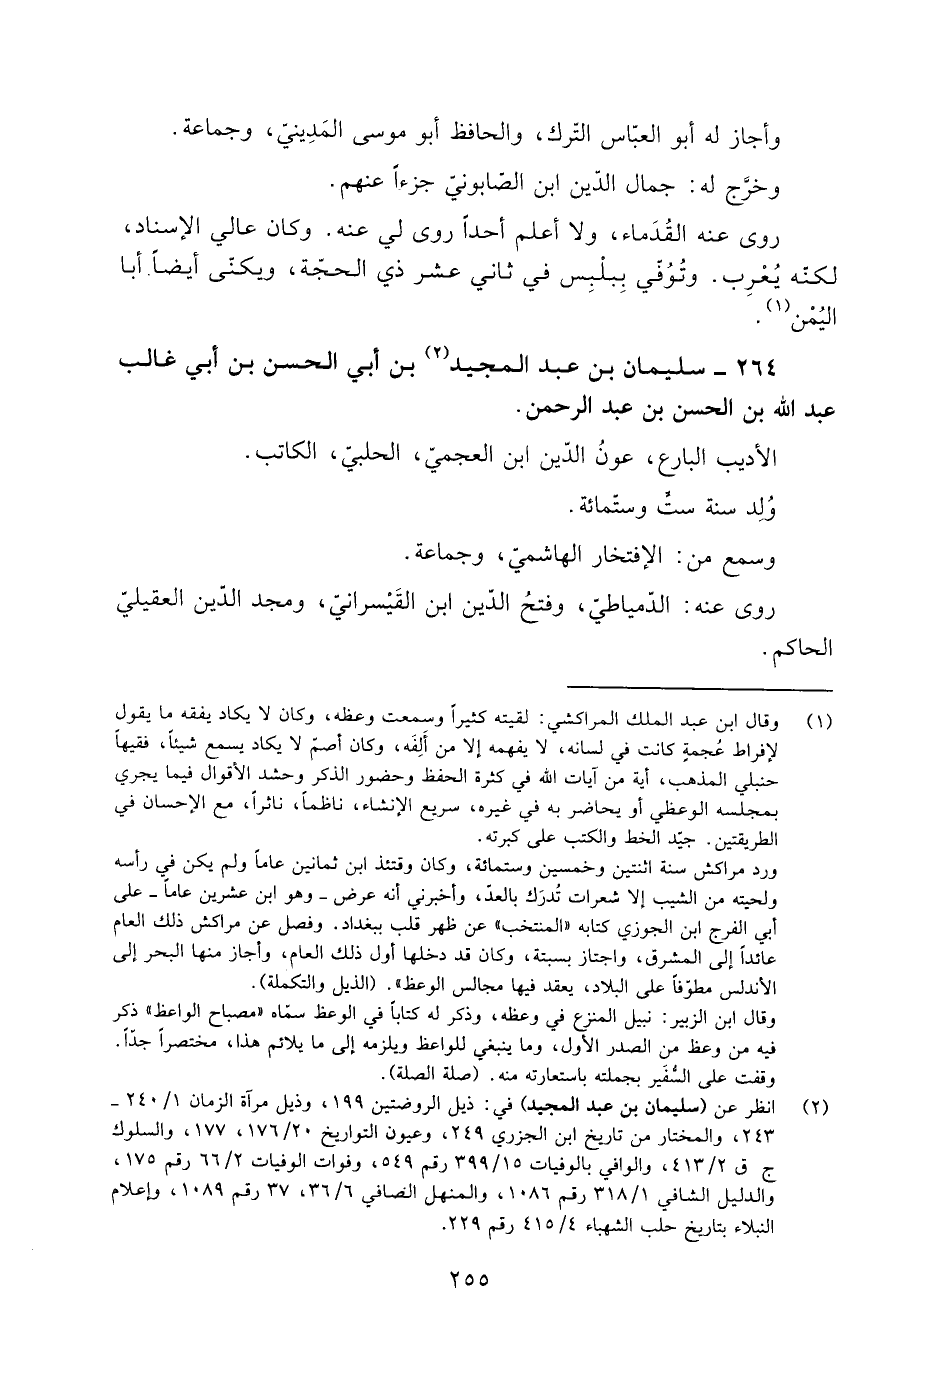 وأجاز له أبو العبّاس التّرك، والحافظ أبو موسى المَدِينيّ، وجماعة.
وخرَّج له: جمال الدّين ابن الصّابونيّ جزءاً عنهم.
روى عنه القُدَماء، ولا أعلم أحداً روى لي عنه. وكان عالي الإسناد،
لكنّه يُغْرِب. وتُوُفّي بِبلْبِس في ثاني عشر ذي الحجّة، ويكنّى أيضاً أبا
اليُمْن(١).
٢٦٤ ـ سليمان بن عبد المجيد(٢) بن أبي الحسن بن أبي غالب
عبد الله بن الحسن بن عبد الرحمن.
الأديب البارع، عونُ الدّين ابن العجميّ، الحلبيّ، الكاتب.
وُلِد سنة ستٌّ وستّمائة.
وسمع من: الإفتخار الهاشميّ، وجماعة.
روى عنه: الدّمياطيّ، وفتحُ الدّين ابن القَيْسرانيّ، ومجد الدّين العقيليّ
الحاكم.
(١) وقال ابن عبد الملك المراكشي: لقيته كثيراً وسمعت وعظه، وكان لا يكاد يفقه ما يقول
لإفراط عُجمةٍ كانت في لسانه، لا يفهمه إلا من أَلِفَه، وكان أصمّ لا يكاد يسمع شيئاً، فقيهاً
حنبلي المذهب، أية من آيات الله في كثرة الحفظ وحضور الذكر وحشد الأقوال فيما يجري
بمجلسه الوعظي أو يحاضر به في غيره، سريع الإنشاء، ناظماً، ناثراً، مع الإحسان في
الطريقتين. جيّد الخط والكتب على كبرته.
ورد مراكش سنة اثنتين وخمسين وستمائة، وكان وقتئذ ابن ثمانين عاماً ولم يكن في رأسه
ولحيته من الشيب إلا شعرات تُدرَك بالعدّ، وأخبرني أنه عرض ـ وهو ابن عشرين عاماً ـ على
أبي الفرج ابن الجوزي كتابه «المنتخب» عن ظهر قلب ببغداد. وفصل عن مراكش ذلك العام
عائداً إلى المشرق، واجتاز بسبتة، وكان قد دخلها أول ذلك العام، وأجاز منها البحر إلى
الأندلس مطوّفاً على البلاد، يعقد فيها مجالس الوعظ». (الذيل والتكملة).
وقال ابن الزبير: نبيل المنزع في وعظه، وذكر له كتاباً في الوعظ سمّاه «مصباح الواعظ» ذكر
فيه من وعظ من الصدر الأول، وما ينبغي للواعظ ويلزمه إلى ما يلائم هذا، مختصراً جدّاً.
وقفت على السُّفَير بجملته باستعارته منه. (صلة الصلة).
(٢) انظر عن (سليمان بن عبد المجيد) في: ذيل الروضتين ١٩٩، وذيل مرآة الزمان ١/ ٢٤٠ ـ
٢٤٣، والمختار من تاريخ ابن الجزري ٢٤٩، وعيون التواريخ ٢٠/ ١٧٦، ١٧٧، والسلوك
ج ق ٤١٣/٢، والوافي بالوفيات ١٥/ ٣٩٩ رقم ٥٤٩، وفوات الوفيات ٢/ ٦٦ رقم ١٧٥،
والدليل الشافي ١/ ٣١٨ رقم ١٠٨٦، والمنهل الصافي ٦/ ٣٦، ٣٧ رقم ١٠٨٩، وإعلام
النبلاء بتاريخ حلب الشهباء ٤/ ٤١٥ رقم ٢٢٩.
٢٥٥